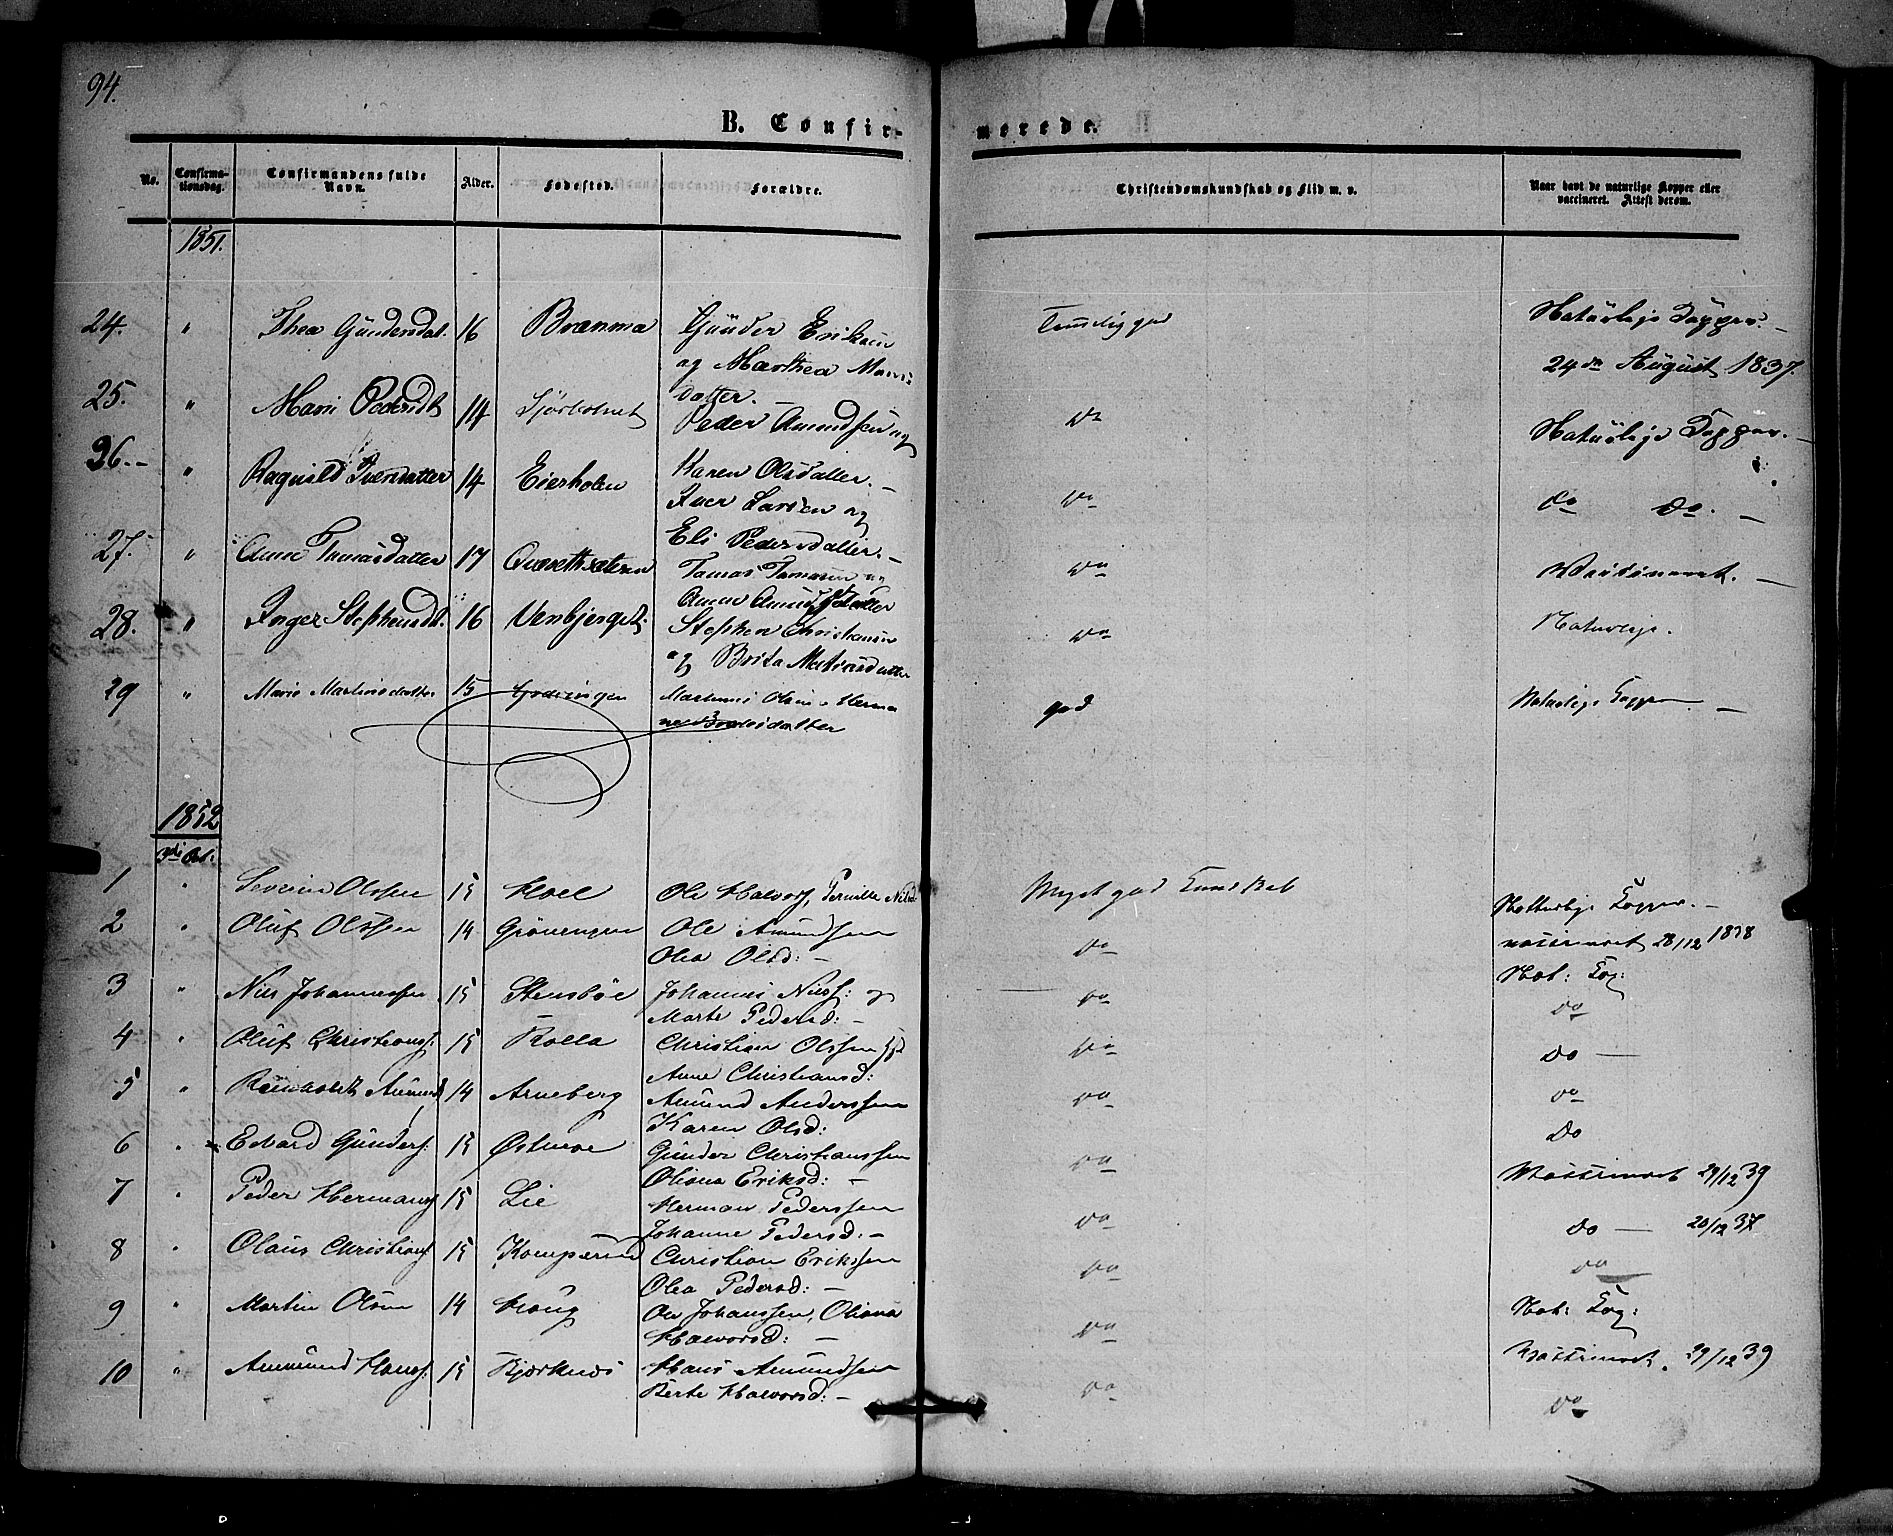 94.
B. Confirmerede.
No. Confirmationsdag. Confirmandens fulde Navn. Alder. Fødested. Forældre. Christendomskundskab og Flid m. v. Naar havt de naturlige Kopper eller vaccineret. Attest derom.
1851.
24. " Thea Gundersdat. 16 Brænma Gunder Eriksen Temelig god Naturlige Kopper. –
og Marthea Mons 24de August 1837.
datter.
25. " Mari Pedersdt 14 Peder Amundsen og do Naturlige Kopper. –
Karen Olsdatter. –
26. – " Ragnild Iversdatter 14 Eierholen Iver Larsen og do do do. –
Eli Pedersdatter. –
27. " Anne Tomasdatter 17 Qvesethsæteren Tomas Tomasen og do Vaccineret. –
Anne Amundsdatter
28. " Inger Stephensdt. 16 Venbjerget. Stephen Christiansen do Naturlige.
og Brita Mathiasdatter
29 " Marie Martinsdatter 15 Martinus Olsen Herma god Naturlige Kopper –
datter
1852
3die Oct.
1 " Severin Olssen 15 Hoel Ole Halvors, Pernille Nilsd Meget god Kundskab Natturlige Kopper. –
2 " Oluf Olssen 14 Grønengen Ole Amundsen do vaccineret 28/12 1838
Olea Olsd: –
3 " Nils Johannessen 15 Stensbøe Johannes Nilss: og do Nat: Kop:
Marte Pedersd: – do
4 " Oluf Christians: 15 Rolla Christian Olssen do Do –
Anne Christiansd:
5 " Reinholdt Amunds 14 Arneberg Amund Anderssen do do
Karen Olsd:
6 " Edvard Gunders: 15 Østmoe Gunder Christianssen do Do
Oliana Eriksd: –
7 " Peder Hermans 15 Lie Herman Pederssen do Vaccineret 29/12 39
Johanne Pedersd: –
8 " Olaus Christians 15 Christian Erikssen do Do – 20/12 37
Olea Pedersd: –
9 " Martin Olsen 14 Houg Ole Johanssen, Oliana do Nat: Kop:
Halvorsd: –
10 " Ammund Hanss: 15 Bjørknes Hans Amundsen do Vaccineret. 29/12 39
Berte Halvorsd: – do